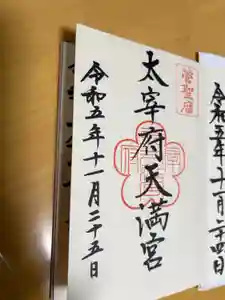 菅聖廟
太宰府天満宮
令和五年十一月二十五日
令和五年十一月二十四日